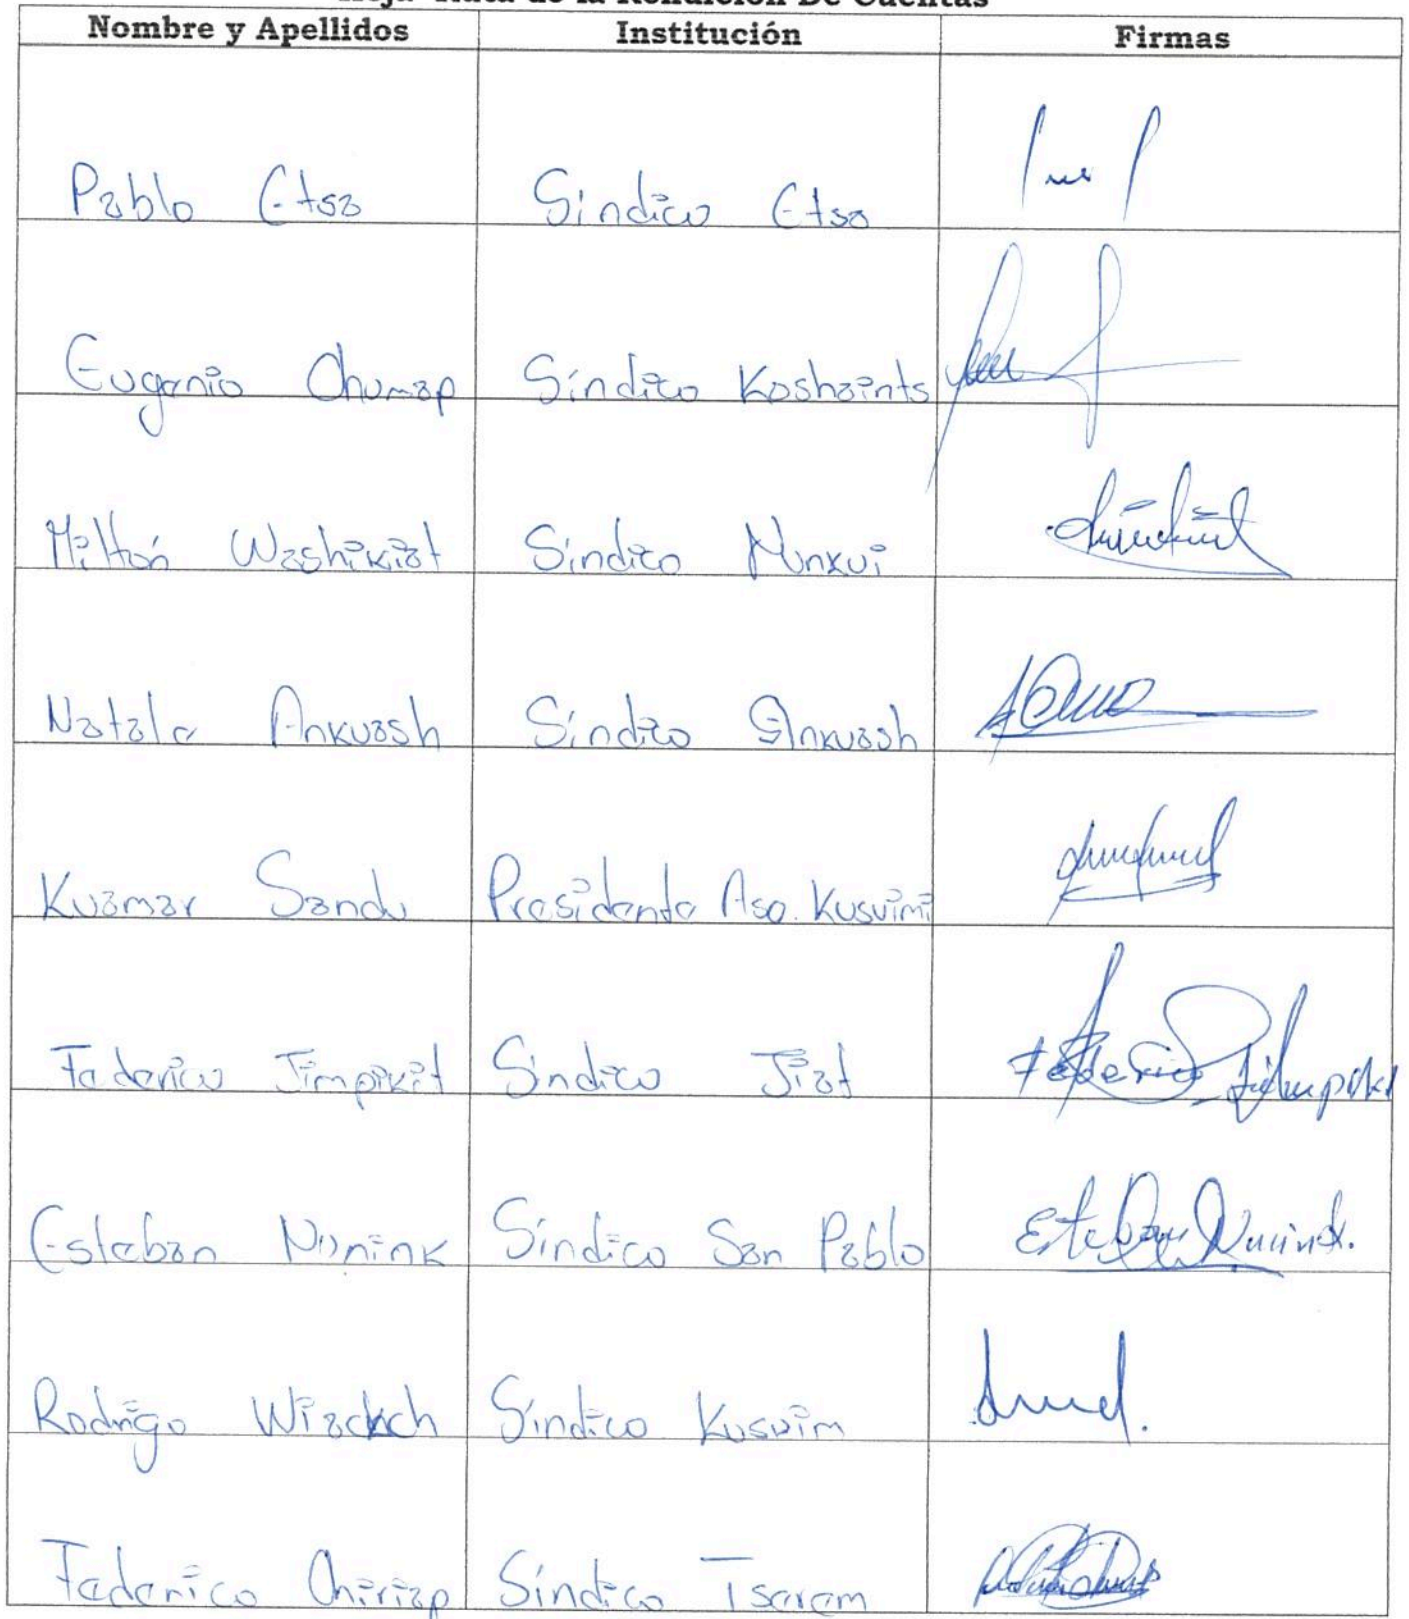 Hoja Ruta de la Rendición De Cuentas
Nombre y Apellidos Institución Firmas
Pablo Etsa Síndico Etsa
Eugenio Chumap Síndico Kashaints
Miltón Washikiat Síndico Nunkui
Natale Ankuash Síndico Ankuash
Kuamar Sandu Presidente Aso. Kusuimi
Federico Jimpikit Síndico Jiat Federico Jimpikit
Esteban Nunink Síndico San Pablo Esteban Nunink.
Rodrigo Wisckch Síndico Kusuim
Federico Chiriap Síndico Tserem